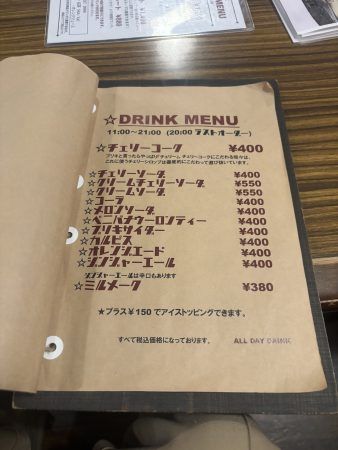 MENU
☆DRINK MENU
11:00~21:00 (20:00 ラストオーダー)
☆チェリーコーク ¥400
☆チェリーソーダ ¥400
☆クリームチェリーソーダ ¥550
☆クリームソーダ ¥550
☆コーラ ¥400
☆メロンソーダ ¥400
☆ベニバナウーロンティー ¥400
☆ブリキサイダー ¥400
☆カルピス ¥400
☆オレンジエード ¥400
☆ジンジャーエール ¥400
ジンジャーエールは辛口もあります
☆ミルメーク ¥380
★プラス¥150でアイストッピングできます。
すべて税込価格になっております。
ALL DAY DRINK